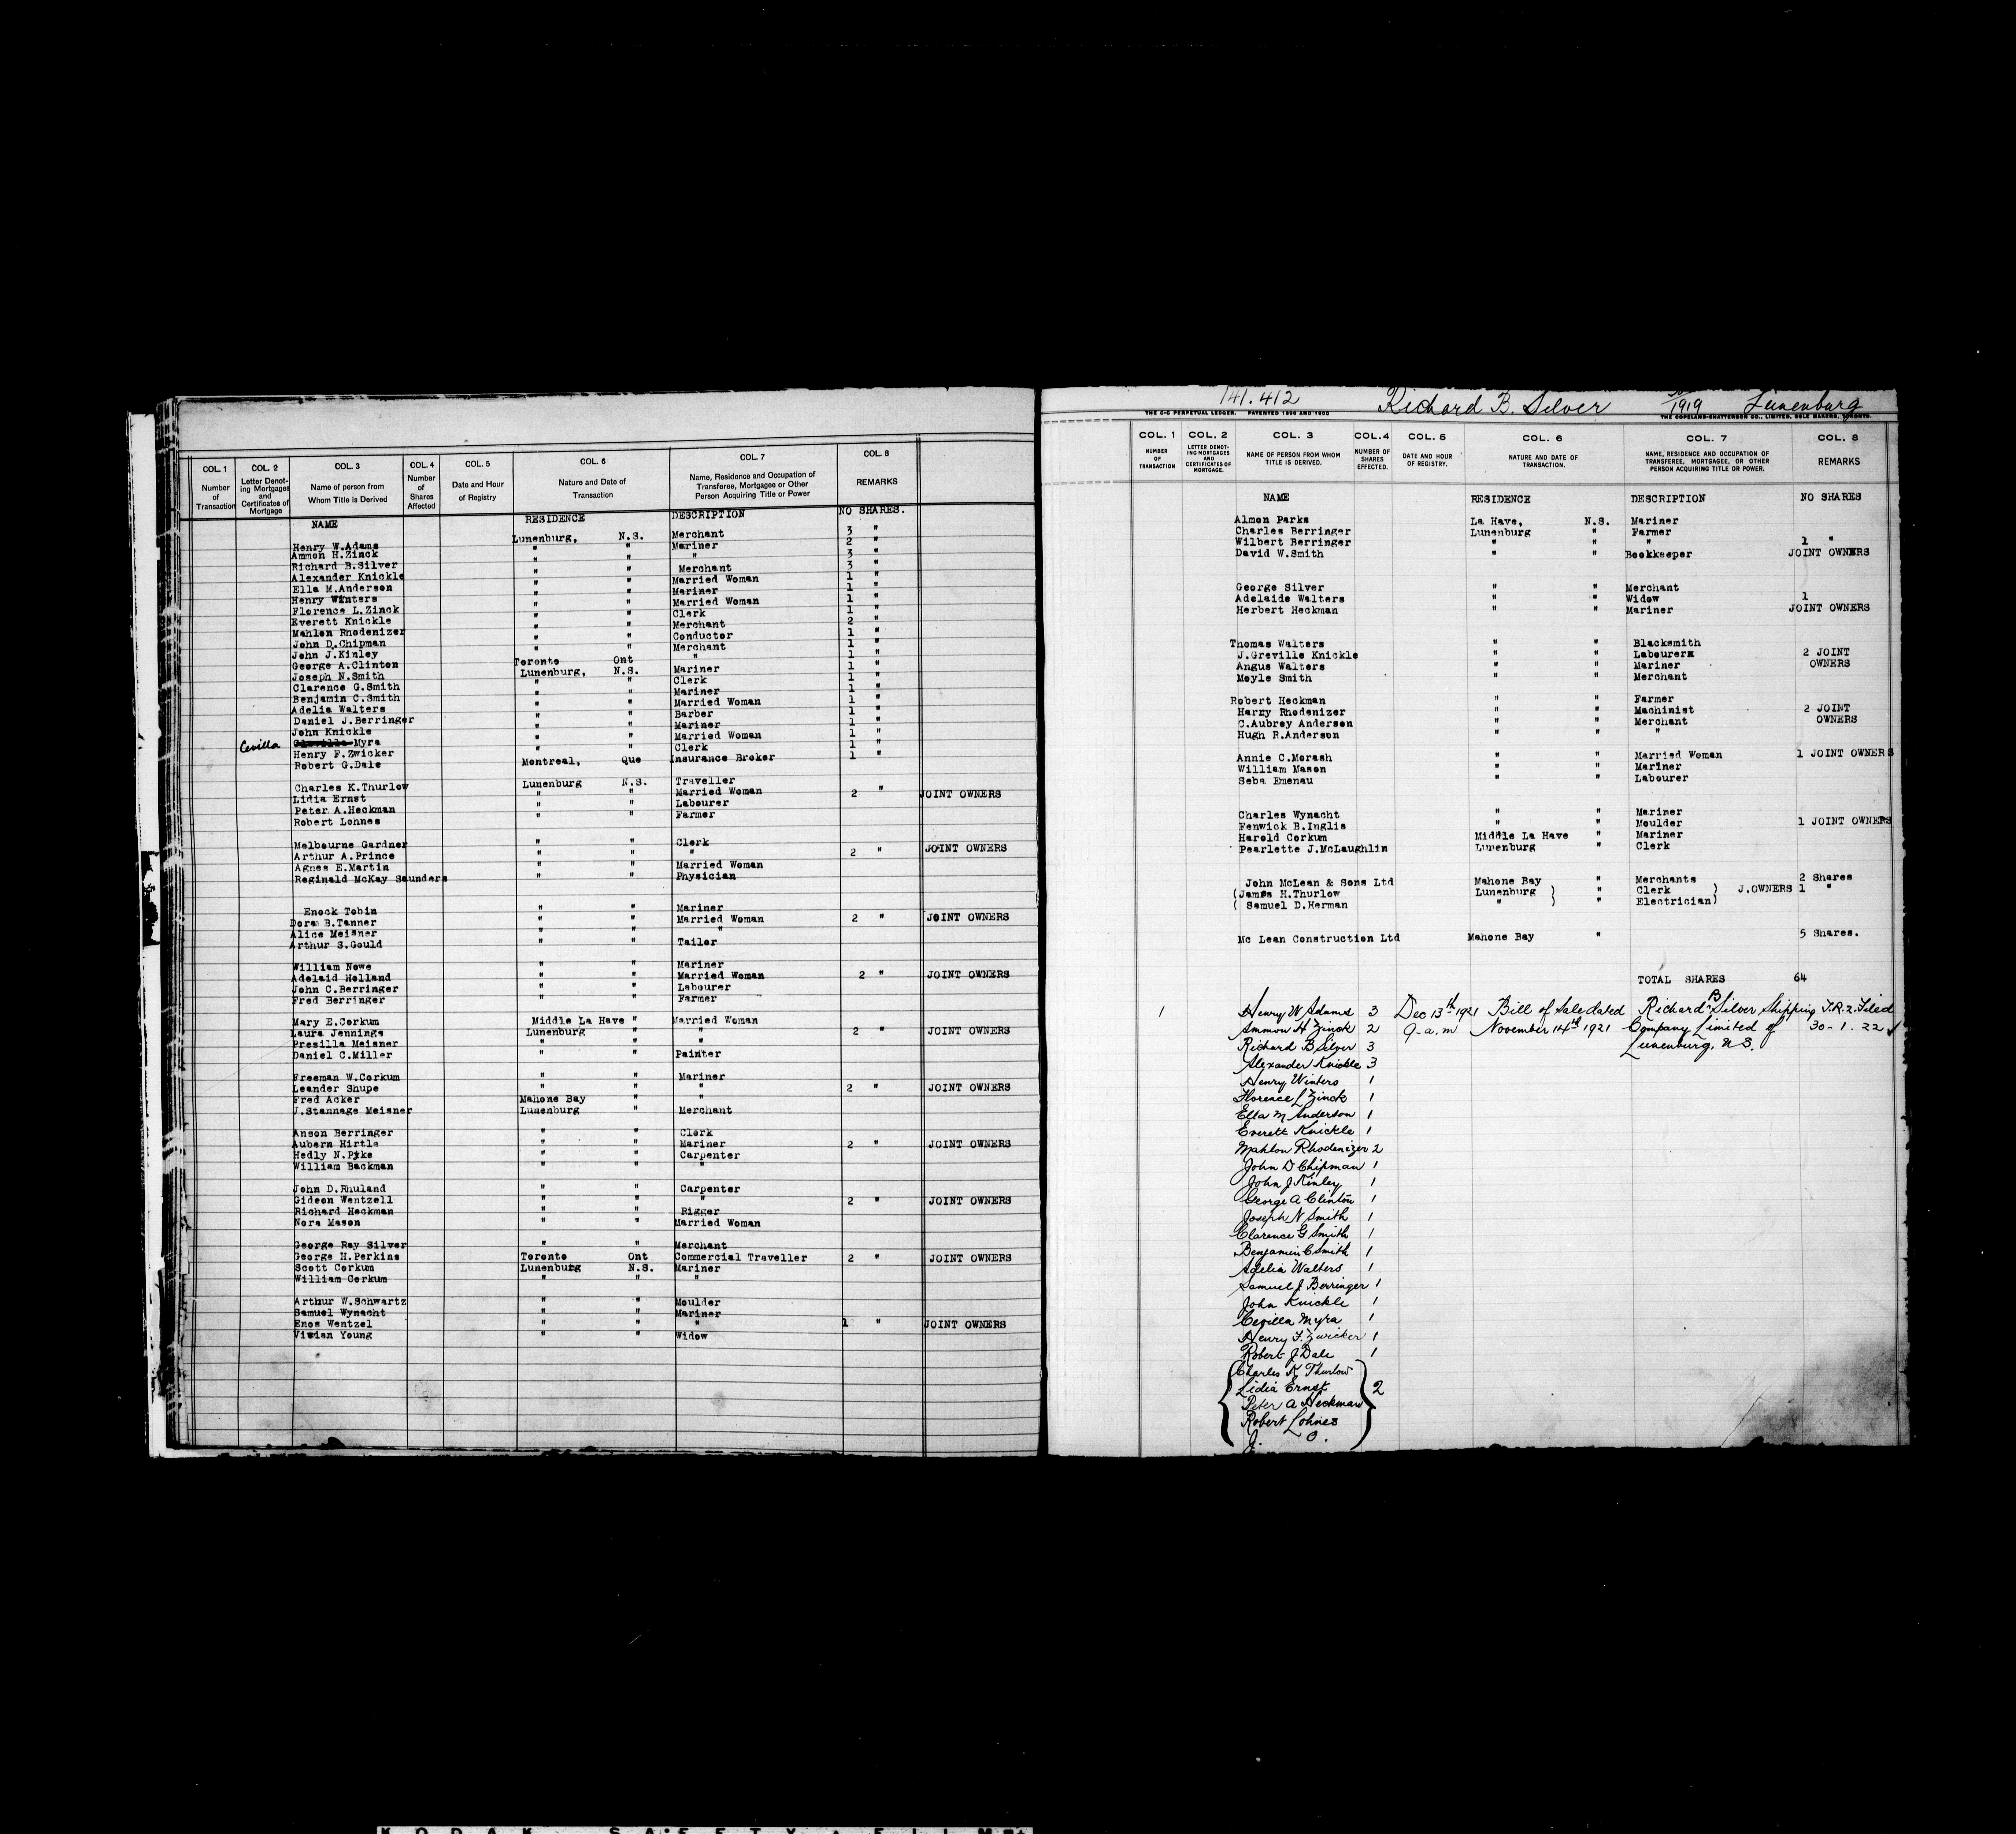 COL. 1 COL. 2 COL. 3 COL. 4 COL. 5 COL. 6 COL. 7 COL. 8
Number of Transaction Letter Denoting Mortgages and Certificates of Mortgage Name of person from Whom Title is Derived Number of Shares Affected Date and Hour of Registry Nature and Date of Transaction Name, Residence and Occupation of Transferee, Mortgagee or Other Person Acquiring Title or Power REMARKS
NAME RESIDENCE DESCRIPTION NO SHARES.
Henry W.Adams Lunenburg, N.S. Merchant 3 "
Ammon H.Zinck " " Mariner 2 "
Richard B.Silver " " " 3 "
Alexander Knickle " " Merchant 3 "
Ella M.Anderson " " Married Woman 1 "
Henry Winters " " Mariner 1 "
Florence L.Zinck " " Married Woman 1 "
Everett Knickle " " Clerk 1 "
Mahlon Rhodenizer " " Merchant 2 "
John D.Chipman " " Conductor 1 "
John J.Kinley " " Merchant 1 "
George A.Clinton Toronto Ont " 1 "
Joseph N.Smith Lunenburg, N.S. Mariner 1 "
Clarence G.Smith " " Clerk 1 "
Benjamin C.Smith " " Mariner 1 "
Adelia Walters " " Married Woman 1 "
Daniel J.Berringer " " Barber 1 "
John Knickle " " Mariner 1 "
Cevilla Myra " " Married Woman 1 "
Henry F.Zwicker " " Clerk 1 "
Robert G.Dale Montreal, Que Insurance Broker 1 "
Charles K.Thurlow Lunenburg N.S. Traveller
Lidia Ernst " " Married Woman 2 " JOINT OWNERS
Peter A.Heckman " " Labourer
Robert Lohnes " " Farmer
Melbourne Gardner " " Clerk
Arthur A.Prince " " " 2 " JOINT OWNERS
Agnes E.Martin " " Married Woman
Reginald McKay Saunders " " Physician
Enock Tobin " " Mariner
Dora B.Tanner " " Married Woman 2 " JOINT OWNERS
Alice Meisner " " "
Arthur S.Gould " " Tailor
William Nowe " " Mariner
Adelaid Holland " " Married Woman 2 " JOINT OWNERS
John C.Berringer " " Labourer
Fred Berringer " " Farmer
Mary E.Corkum Middle La Have " Married Woman
Laura Jennings Lunenburg " " 2 " JOINT OWNERS
Presilla Meisner " " "
Daniel C.Miller " " Painter
Freeman W.Corkum " " Mariner
Leander Shupe " " " 2 " JOINT OWNERS
Fred Acker Mahone Bay " "
J.Stannage Meisner Lunenburg " Merchant
Anson Berringer " " Clerk
Aubern Hirtle " " Mariner 2 " JOINT OWNERS
Hedly N.Pyke " " Carpenter
William Backman " " "
John D.Rhuland " " Carpenter
Gideon Wentzell " " " 2 " JOINT OWNERS
Richard Heckman " " Rigger
Nora Mason " " Married Woman
George Ray Silver " " Merchant
George H.Perkins Toronto Ont Commercial Traveller 2 " JOINT OWNERS
Scott Corkum Lunenburg N.S. Mariner
William Corkum " " "
Arthur W.Schwartz " " Moulder
Samuel Wynacht " " Mariner
Enos Wentzel " " " 1 " JOINT OWNERS
Vivian Young " " Widow
141.412 Richard B. Silver 1919 Lunenburg
THE C-C PERPETUAL LEDGER. PATENTED 1896 AND 1900 THE COPELAND-CHATTERSON CO., LIMITED, SOLE MAKERS, TORONTO.
COL. 1 COL. 2 COL. 3 COL.4 COL. 5 COL. 6 COL. 7 COL. 8
NUMBER OF TRANSACTION LETTER DENOTING MORTGAGES AND CERTIFICATES OF MORTGAGE. NAME OF PERSON FROM WHOM TITLE IS DERIVED. NUMBER OF SHARES EFFECTED. DATE AND HOUR OF REGISTRY. NATURE AND DATE OF TRANSACTION. NAME, RESIDENCE AND OCCUPATION OF TRANSFEREE, MORTGAGEE, OR OTHER PERSON ACQUIRING TITLE OR POWER. REMARKS
NAME RESIDENCE DESCRIPTION NO SHARES
Almon Parks La Have, N.S. Mariner
Charles Berringer Lunenburg " Farmer
Wilbert Berringer " " " 1 "
David W.Smith " " Bookkeeper JOINT OWNERS
George Silver " " Merchant
Adelaide Walters " " Widow 1
Herbert Heckman " " Mariner JOINT OWNERS
Thomas Walters " " Blacksmith
J.Greville Knickle " " Labourer 2 JOINT
Angus Walters " " Mariner OWNERS
Moyle Smith " " Merchant
Robert Heckman " " Farmer
Harry Rhodenizer " " Machinist 2 JOINT
C.Aubrey Anderson " " Merchant OWNERS
Hugh R.Anderson " " "
Annie C.Morash " " Married Woman 1 JOINT OWNERS
William Mason " " Mariner
Seba Emenau " " Labourer
Charles Wynacht " " Mariner
Fenwick B.Inglis " " Moulder 1 JOINT OWNERS
Harold Corkum Middle La Have " Mariner
Pearlette J.McLaughlin Lunenburg " Clerk
John McLean & Sons Ltd Mahone Bay " Merchants 2 Shares
(James H.Thurlow Lunenburg } " Clerk ) J.OWNERS 1 "
( Samuel D.Herman " } " Electrician)
Mc Lean Construction Ltd Mahone Bay " 5 Shares.
TOTAL SHARES 64
1 Henry W Adams 3 Dec 13th 1921 Bill of Sale dated Richard B Silver Shipping T.R.2. Filed
Ammon H Zinck 2 9-a.m November 14th 1921 Company Limited of 30-1-22 ✓
Richard B Silver 3 Lunenburg, N.S.
Alexander Knickle 3
Henry Winters 1
Florence L Zinck 1
Ella M Anderson 1
Everett Knickle 1
Mahlon Rhodenizer 2
John D Chipman 1
John J Kinley 1
George A Clinton 1
Joseph N Smith 1
Clarence G Smith 1
Benjamin C Smith 1
Adelia Walters 1
Samuel J Berringer 1
John Knickle 1
Cevilla Myra 1
Henry F. Zwicker 1
Robert J Dale 1
{Charles K Thurlow
Lidia Ernst } 2
Peter A Heckman
Robert Lohnes
J. O.
KODAK SAFETY FILM